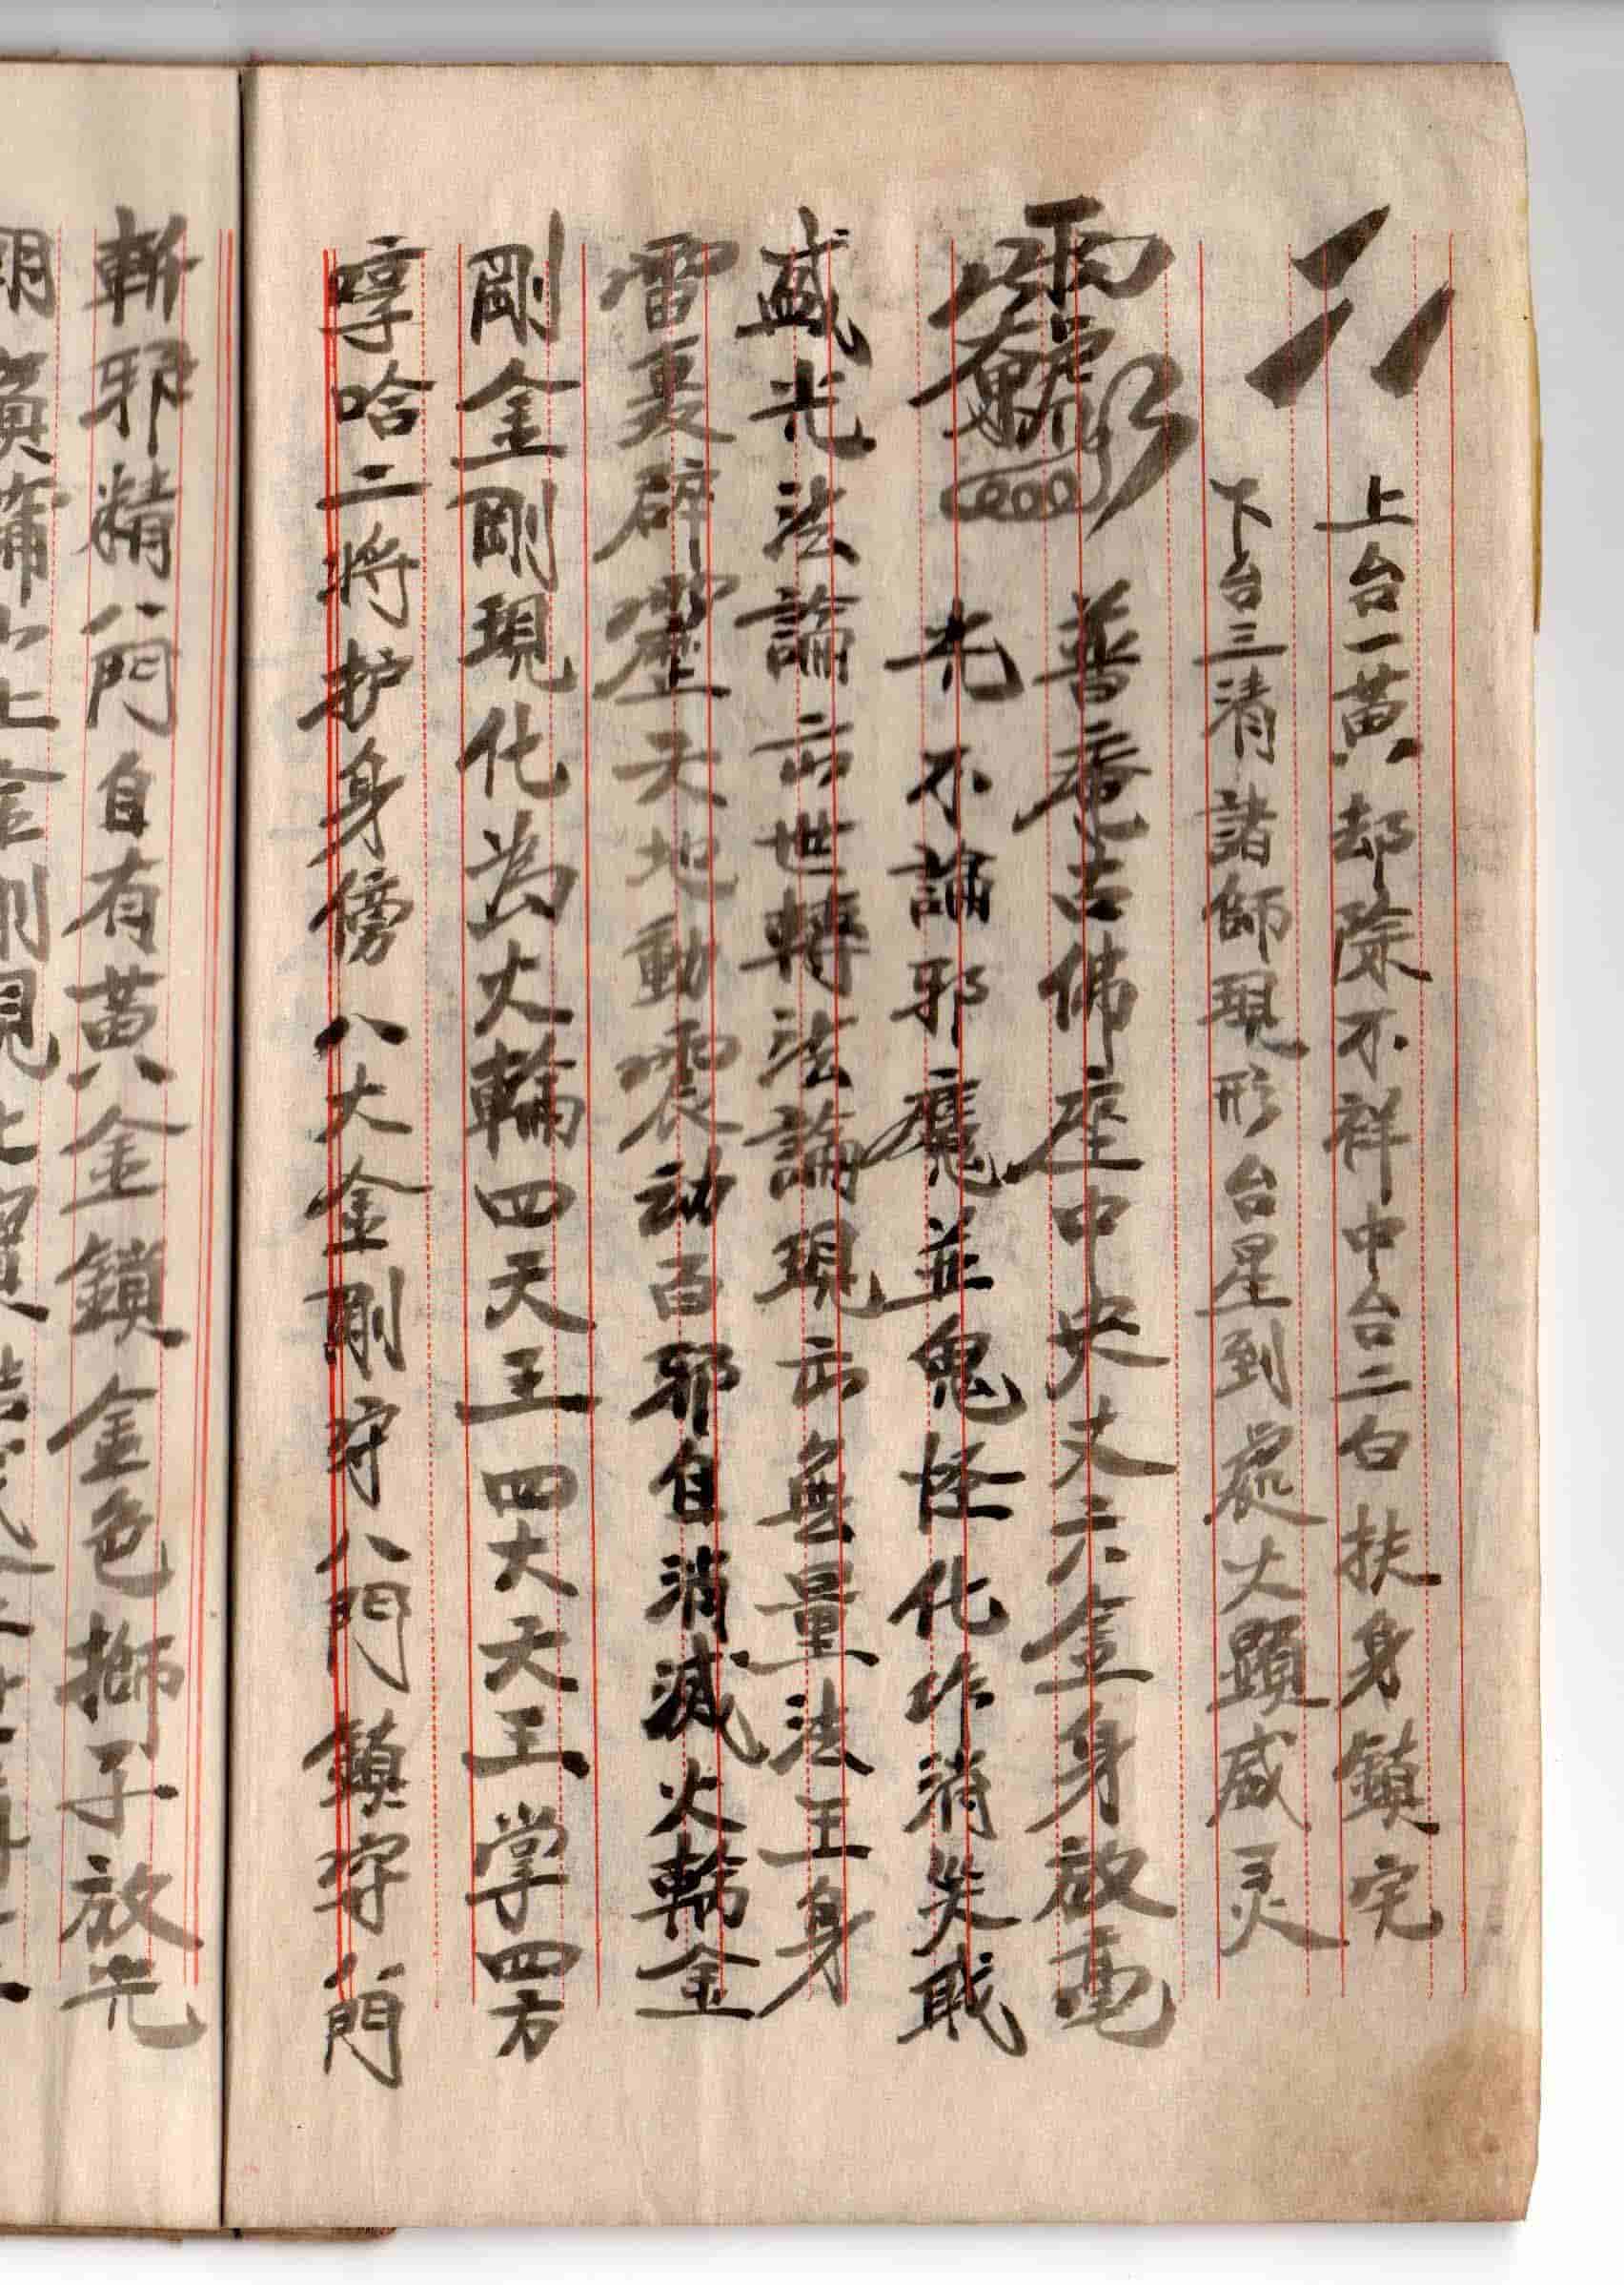 上台一黃却除不祥中台二白扶身鎮宅
下台三清諸師現形台星到處大顯威灵
普庵古佛座中央丈六金身放毫
光不論邪魔並鬼怪化作消災戢
盛光法論六世轉法論現出無量法王身
雷裏霹靂天地動震动百邪自消滅火輪金
剛金剛現化為火輪四天王四大天王掌四方
哼哈二將护身傍八大金剛守八門鎮守八門
斬邪精八門自有黃金鎖金色獅子放光